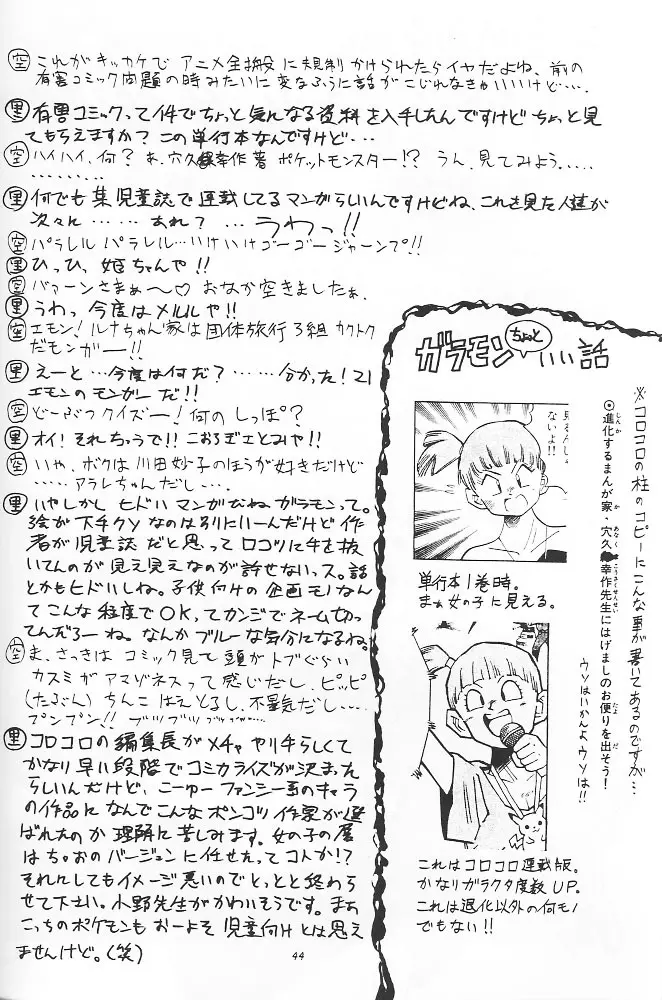 空 これがキッカケで アニメ全搬 に規制 かけられたらイヤだよね、前の
有害コミック問題の時みたいに変なふうに話が こじれなきゃいいけど‥‥.
里 有害コミックって件でちょっと気になる資料を入手したんですけど ちょっと見
てもらえますか? この単行本なんですけど‥‥
空 ハイハイ、何? あ、穴久保幸作 著 ポケットモンスター!? うん、見てみよう‥‥‥
‥‥‥‥ ‥‥‥
里 何でも 集 児童誌で 連載してる マンガらしいんですけどね、これを見た人達が
次々に‥‥ あれ? ‥‥ うわっ!!
空 パラレル パラレル‥‥いけいけゴーゴージャーンプ!!
里 ひっひ、姫ちゃんや!!
空 バァーンさまぁ〜♡ おなか空きましたぁ、
里 うわっ 今度は メルルや!!
空 エモン! ルナちゃん家は 団体旅行 3組 カクトク
だモンガー!!
里 えーと‥‥今度は何だ?‥‥ 分かった! 21
エモンの モンガー だ!!
空 どーぶつクイズー! 何の しっぽ?
里 オイ! それちゃうで!! こおろぎさとみや!!
空 いや、ボクは 川田妙子のほうが好きだけど
‥‥‥ アラレちゃんだし‥‥
里 いやしかし ヒドい マンガだね ガラモンって。
絵が下手クソなのは別にいーんだけど 作
者が 児童誌 だと思って ロコツに手を抜
いてんのが 見え見えなのが許せないっス。話
とかもヒドいしね。子供向けの企画モノなん
てこんな程度でOK、てカンジでネーム切っ
てんだろーね。なんか ブルーな気分になるね。
空 ま、さっきは コミック見て 頭がトブぐらい
カスミが アマゾネスって感じだし、ピッピ
(たるぶん) ちんこ はえとるし、不景気だし‥‥
プンプン!! ブツブツブツブツ‥‥‥
里 コロコロの編集長がメチャ やり手らしくて
かなり早い段階でコミカライズが決まった
らしいんだけど、こーゆーファンシー系のキャラ
の作品になんでこんなポンコツ作家が選
ばれたのか 理解に苦しみます。女の子の層
は ちゃおのバージョンに任せたってコトか!?
それにしてもイメージ悪いのでとっとと終わら
せて下さい。小野先生がかわいそうです。まあ
こっちのポケモンも おーよそ 児童向けとは思え
ませんけど。(笑)
ガラモン ちょっと いい話
見るんじゃ
ないよ!!
単行本1巻時。
まぁ女の子に見える。
これはコロコロ連載版。
かなりガラクタ度数 UP。
これは退化以外の何モノ
でもない!!
※コロコロの柱のコピーにこんな事が書いてあるのですが‥‥
◎進化するまんが家・穴久保幸作先生にはげましのお便りを出そう!
しんか あなくぼ こうさくせんせい たよ だ
ウソはいかんよウソは!!
44